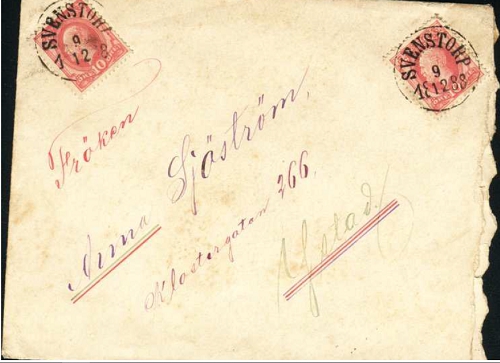 SVENSTORP
9
12 8
10
SVENSTORP
9
1212 88
Fröken
Anna Sjöström,
Klostergatan 266.
Ystad.